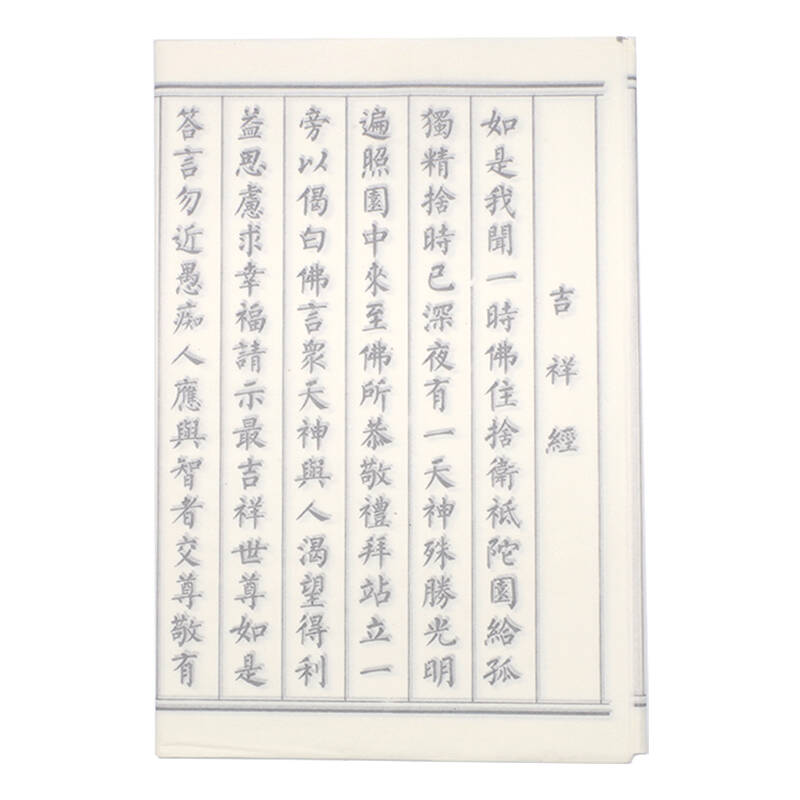 吉祥經
如是我聞一時佛住捨衛祇陀園給孤
獨精捨時已深夜有一天神殊勝光明
遍照園中來至佛所恭敬禮拜站立一
旁以偈白佛言衆天神與人渴望得利
益思慮求幸福請示最吉祥世尊如是
答言勿近愚痴人應與智者交尊敬有